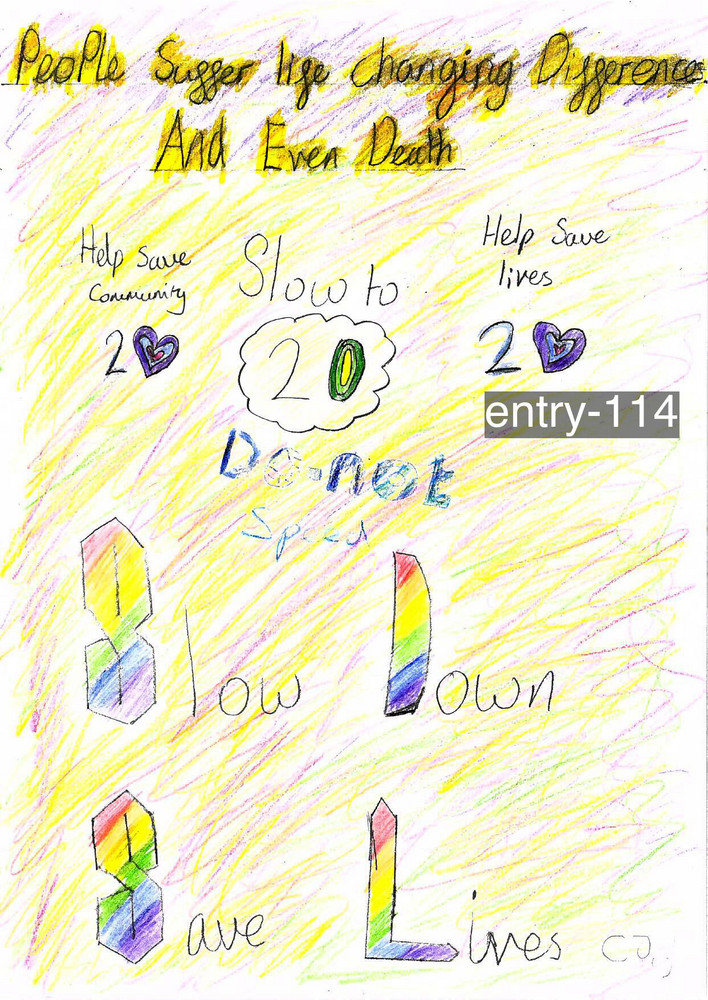 People Suffer life changing Differences
And Even Death
Help Save
Community
20
Slow to
20
Help Save
lives
20
entry-114
Do-not
Speed
Slow Down
Save Lives